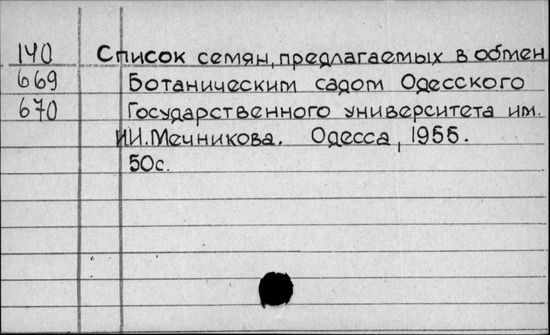 140 Список семян, предлагаемых в обмен
669 Ботаническим садом Одесского
670 Государственного университета им.
И.И.Мечникова. Одесса, 1955.
50с.